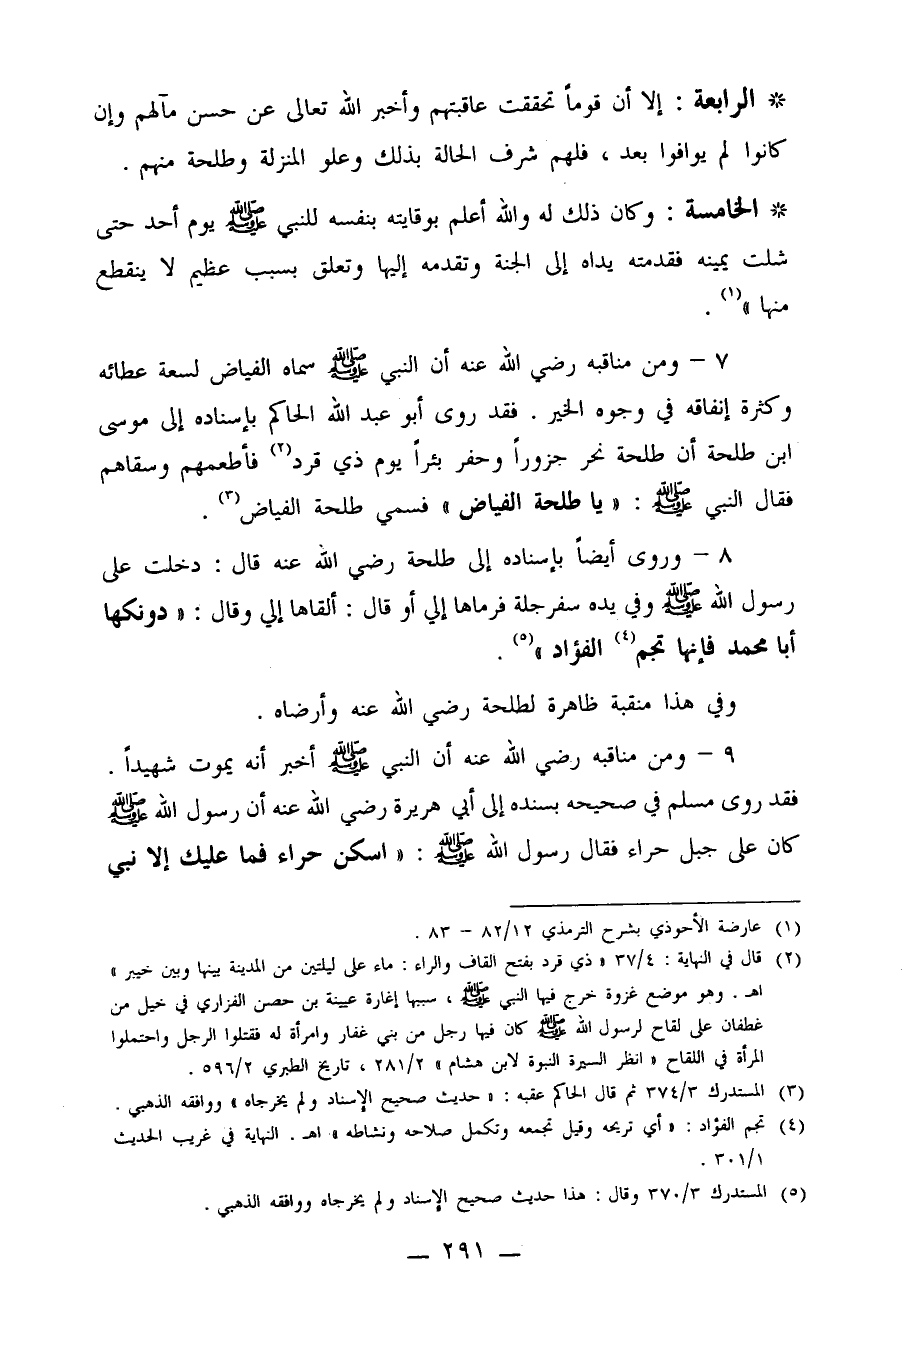 * الرابعة : إلا أن قوماً تحققت عاقبتهم وأخبر الله تعالى عن حسن مآلهم وإن
كانوا لم يوافوا بعد ، فلهم شرف الحالة بذلك وعلو المنزلة وطلحة منهم .
* الخامسة : وكان ذلك له والله أعلم بوقايته بنفسه للنبي ﷺ يوم أحد حتى
شلت يمينه فقدمته يداه إلى الجنة وتقدمه إليها وتعلق بسبب عظيم لا ينقطع
منها »(١) .
٧ – ومن مناقبه رضي الله عنه أن النبي ﷺ سماه الفياض لسعة عطائه
وكثرة إنفاقه في وجوه الخير . فقد روى أبو عبد الله الحاكم بإسناده إلى موسى
ابن طلحة أن طلحة نحر جزوراً وحفر بئراً يوم ذي قرد(٢) فأطعمهم وسقاهم
فقال النبي ﷺ : « يا طلحة الفياض » فسمي طلحة الفياض(٣) .
٨ – وروى أيضاً بإسناده إلى طلحة رضي الله عنه قال : دخلت على
رسول الله ﷺ وفي يده سفرجلة فرماها إلي أو قال : ألقاها إلي وقال : « دونكها
أبا محمد فإنها تجم(٤) الفؤاد »(٥) .
وفي هذا منقبة ظاهرة لطلحة رضي الله عنه وأرضاه .
٩ – ومن مناقبه رضي الله عنه أن النبي ﷺ أخبر أنه يموت شهيداً .
فقد روى مسلم في صحيحه بسنده إلى أبي هريرة رضي الله عنه أن رسول الله ﷺ
كان على جبل حراء فقال رسول الله ﷺ : « اسكن حراء فما عليك إلا نبي
(١) عارضة الأحوذي بشرح الترمذي ٨٢/١٢ – ٨٣ .
(٢) قال في النهاية : ٣٧/٤ « ذي قرد بفتح القاف والراء : ماء على ليلتين من المدينة بينها وبين خيبر »
اهـ . وهو موضع غزوة خرج فيها النبي ﷺ ، سببها إغارة عيينة بن حصن الفزاري في خيل من
غطفان على لقاح لرسول الله ﷺ كان فيها رجل من بني غفار وامرأة له فقتلوا الرجل واحتملوا
المرأة في اللقاح « انظر السيرة النبوة لابن هشام » ٢٨١/٢ ، تاريخ الطبري ٥٩٦/٢ .
(٣) المستدرك ٣٧٤/٣ ثم قال الحاكم عقبه : « حديث صحيح الإسناد ولم يخرجاه » ووافقه الذهبي .
(٤) تجم الفؤاد : « أي تريحه وقيل تجمعه وتكمل صلاحه ونشاطه » اهـ . النهاية في غريب الحديث
٣٠١/١ .
(٥) المستدرك ٣٧٠/٣ وقال : هذا حديث صحيح الإسناد ولم يخرجاه ووافقه الذهبي .
– ٢٩١ –